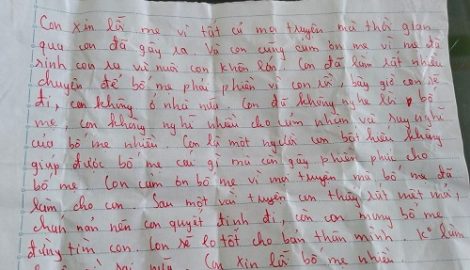 Con xin lỗi mẹ vì tất cả mọi truyện mà thời gian
qua con đã gây ra. Và con cũng cảm ơn mẹ vì mẹ đã
sinh con ra và nuôi con khôn lớn. Con đã làm rất nhiều
chuyện để bố mẹ phải phiền vì con rồi, bây giờ con sẽ
đi, con không ở nhà nữa. Con đã không nghe lời bố
mẹ, con không nghĩ nhiều cho cảm nhận và suy nghĩ
của bố mẹ nhiều. Con là một người con bất hiếu không
giúp được bố mẹ cái gì mà còn gây phiền phức cho
bố mẹ. Con cảm ơn bố mẹ vì mọi truyện mà bố mẹ đã
làm cho con. Sau một vài truyện con thấy rất mệt mỏi,
chán nản nên con quyết định đi, con mong bố mẹ
đừng tìm con. Con sẽ lo tốt cho bản thân mình. K° làm
nữa. Con xin lỗi bố mẹ nhiều.